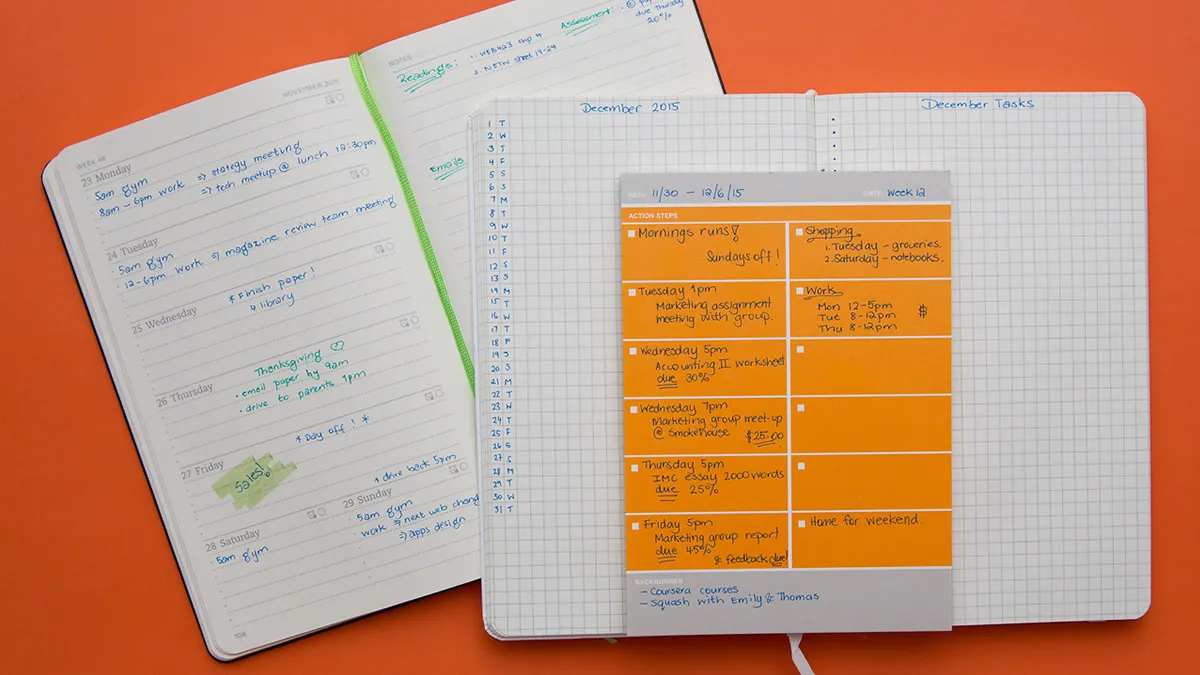 NOVEMBER 2015
WEEK 48
23 Monday
5am gym
8am - 6pm work => stategy meeting
=> tech meetup @ lunch 12:30pm
24 Tuesday
• 5am gym
• 12-6pm work => magazine review team meeting
* Finish paper!
↳ library
25 Wednesday
Thanksgiving
• email paper by 9am
• drive to parents 1pm
26 Thursday
* Day off! *
27 Friday
Sales!
28 Saturday
5am gym
* drive back 5pm
29 Sunday
5am gym
work => next web
=> apps design
106
NOTES
Readings:
1. WEB423 chp 4
2. NETW sheet 19-24
Assessment:
due Thursday
20%
Emails
December 2015
1 T
2 W
3 T
4 F
5 S
6 S
7 M
8 T
9 W
10 T
11 F
12 S
13 S
14 M
15 T
16 W
17 T
18 F
19 S
20 S
21 M
22 T
23 W
24 T
25 F
26 S
27 S
28 M
29 T
30 W
31 T
December Tasks
RE: 11/30 - 12/6/15
DATE: Week 12
ACTION STEPS
Mornings runs!
Sundays off!
Tuesday 1pm
Marketing assignment
meeting with group.
Wednesday 5pm
Accounting II worksheet
due 30%
Wednesday 7pm
Marketing group meet-up
@ Smokehouse $25.00
Thursday 5pm
IMC essay 2000 words
due 25%
Friday 5pm
Marketing group report
due 45%
& feedback due!
Shopping
1. Tuesday - groceries.
2. Saturday - notebooks.
Work
Mon 12-5pm
Tue 8-12pm
Thu 8-12pm
$
Home for weekend.
BACKBURNER
- Coursera courses
- Squash with Emily & Thomas